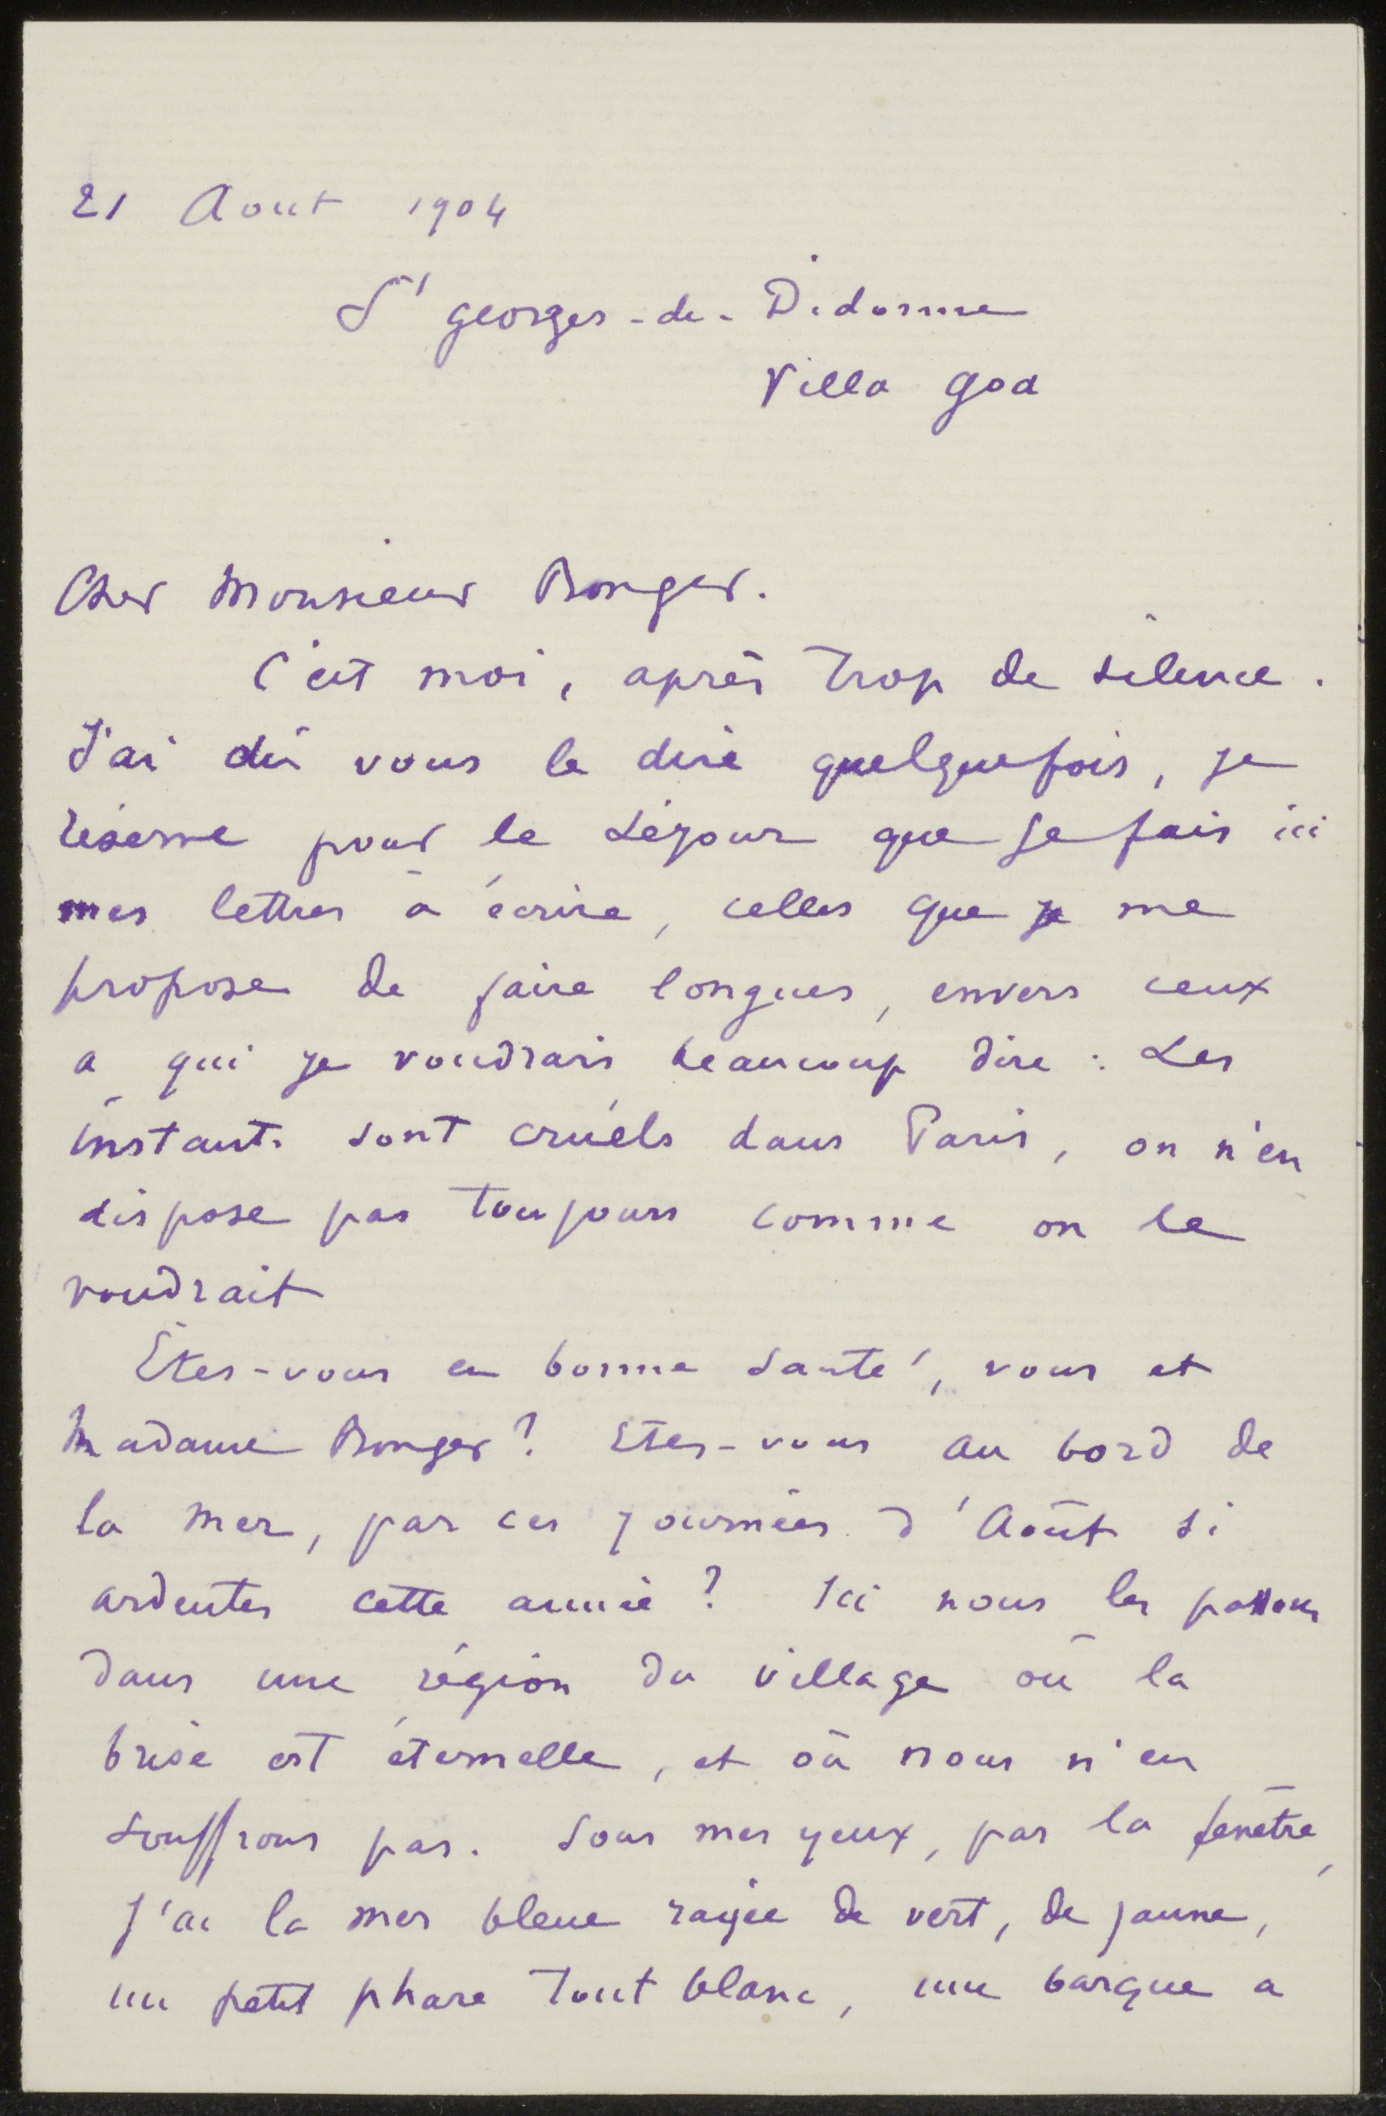 21 Aout 1904
St georges-de-Didonne
Villa Goa
Cher Monsieur Bonger.
C'est moi, après trop de silence.
J'ai dû vous le dire quelquefois, je
réserve pour le séjour que je fais ici
mes lettres à écrire, celles que je me
propose de faire longues, envers ceux
a qui je voudrais beaucoup dire : Les
instants sont cruels dans Paris, on n'en
dispose pas toujours comme on le
voudrait
Êtes-vous en bonne santé, vous et
Madame Bonger? Etes-vous au bord de
la mer, par ces journées d'Août si
ardentes cette année? Ici nous les passons
dans une région du village où la
brise est éternelle, et où nous n'en
souffrons pas. Sous mes yeux, par la fenêtre,
j'ai la mer bleue rayée de vert, de jaune,
un petit phare tout blanc, une barque a